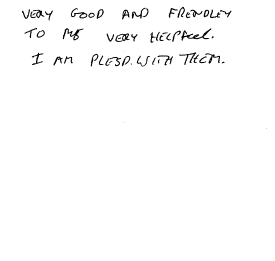 VERY GOOD AND FRENDLEY
TO ME VERY HELPFUL.
I AM PLESD. WITH THEM.